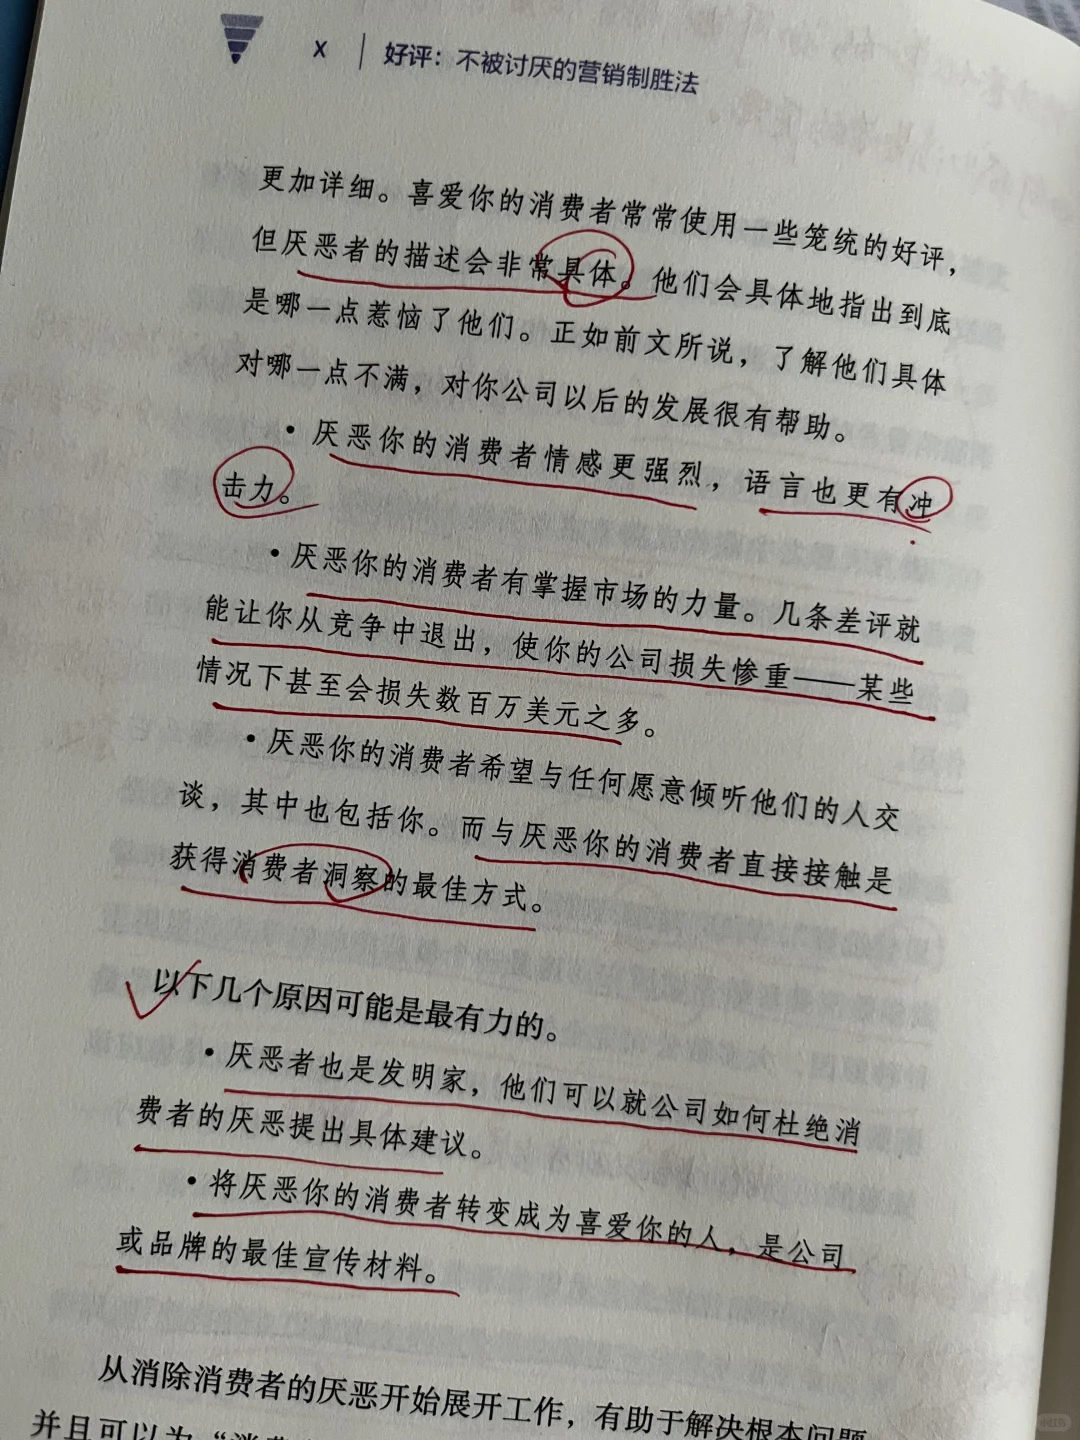 X 好评：不被讨厌的营销制胜法
更加详细。喜爱你的消费者常常使用一些笼统的好评，
但厌恶者的描述会非常具体。他们会具体地指出到底
是哪一点惹恼了他们。正如前文所说，了解他们具体
对哪一点不满，对你公司以后的发展很有帮助。
• 厌恶你的消费者情感更强烈，语言也更有冲
击力。
• 厌恶你的消费者有掌握市场的力量。几条差评就
能让你从竞争中退出，使你的公司损失惨重——某些
情况下甚至会损失数百万美元之多。
• 厌恶你的消费者希望与任何愿意倾听他们的人交
谈，其中也包括你。而与厌恶你的消费者直接接触是
获得消费者洞察的最佳方式。
以下几个原因可能是最有力的。
• 厌恶者也是发明家，他们可以就公司如何杜绝消
费者的厌恶提出具体建议。
• 将厌恶你的消费者转变成为喜爱你的人，是公司
或品牌的最佳宣传材料。
从消除消费者的厌恶开始展开工作，有助于解决根本问题
并且可以为“消费